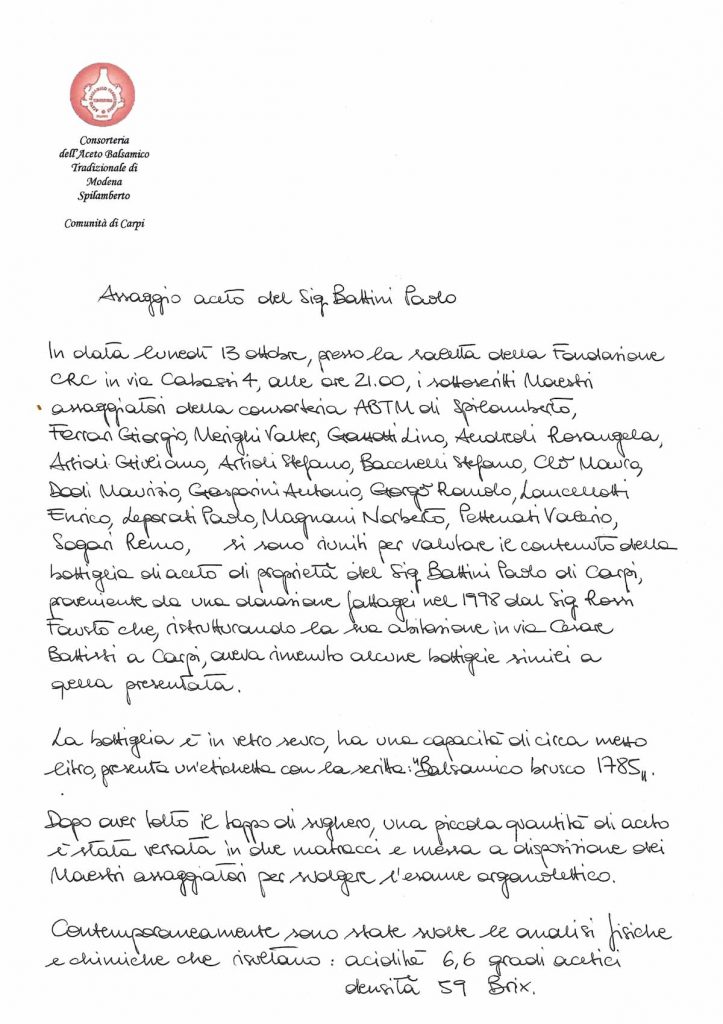 Consorteria
dell'Aceto Balsamico
Tradizionale di
Modena
Spilamberto
Comunità di Carpi
Assaggio aceto del Sig. Battini Paolo
In data lunedì 13 ottobre, presso la saletta della Fondazione
CRC in via Cabassi 4, alle ore 21.00, i sottoscritti Maestri
assaggiatori della consorteria ABTM di Spilamberto,
Ferrari Giorgio, Merighi Valter, Lino, Andreoli Rosangela,
Artioli Giuliano, Artioli Stefano, Bacchelli Stefano, Clò Mauro,
Dodi Maurizio, Gasparini Antonio, Gorgò Romolo, Lancellotti
Enrico, Leporati Paolo, Magnani Norberto, Pettenati Valerio,
Sogari Remo, si sono riuniti per valutare il contenuto della
bottiglia di aceto di proprietà del Sig. Battini Paolo di Carpi,
proveniente da una donazione fattagli nel 1998 dal Sig. Rossi
Fausto che, ristrutturando la sua abitazione in via Cesare
Battisti a Carpi, aveva rinvenuto alcune bottiglie simili a
quella presentata.
La bottiglia è in vetro scuro, ha una capacità di circa mezzo
litro, presenta un'etichetta con la scritta: "Balsamico brusco 1785".
Dopo aver tolto il tappo di sughero, una piccola quantità di aceto
è stata versata in due matracci e messa a disposizione dei
Maestri assaggiatori per svolgere l'esame organolettico.
Contemporaneamente sono state svolte le analisi fisiche
e chimiche che risultano: acidità 6,6 gradi acetici
densità 59 Brix.